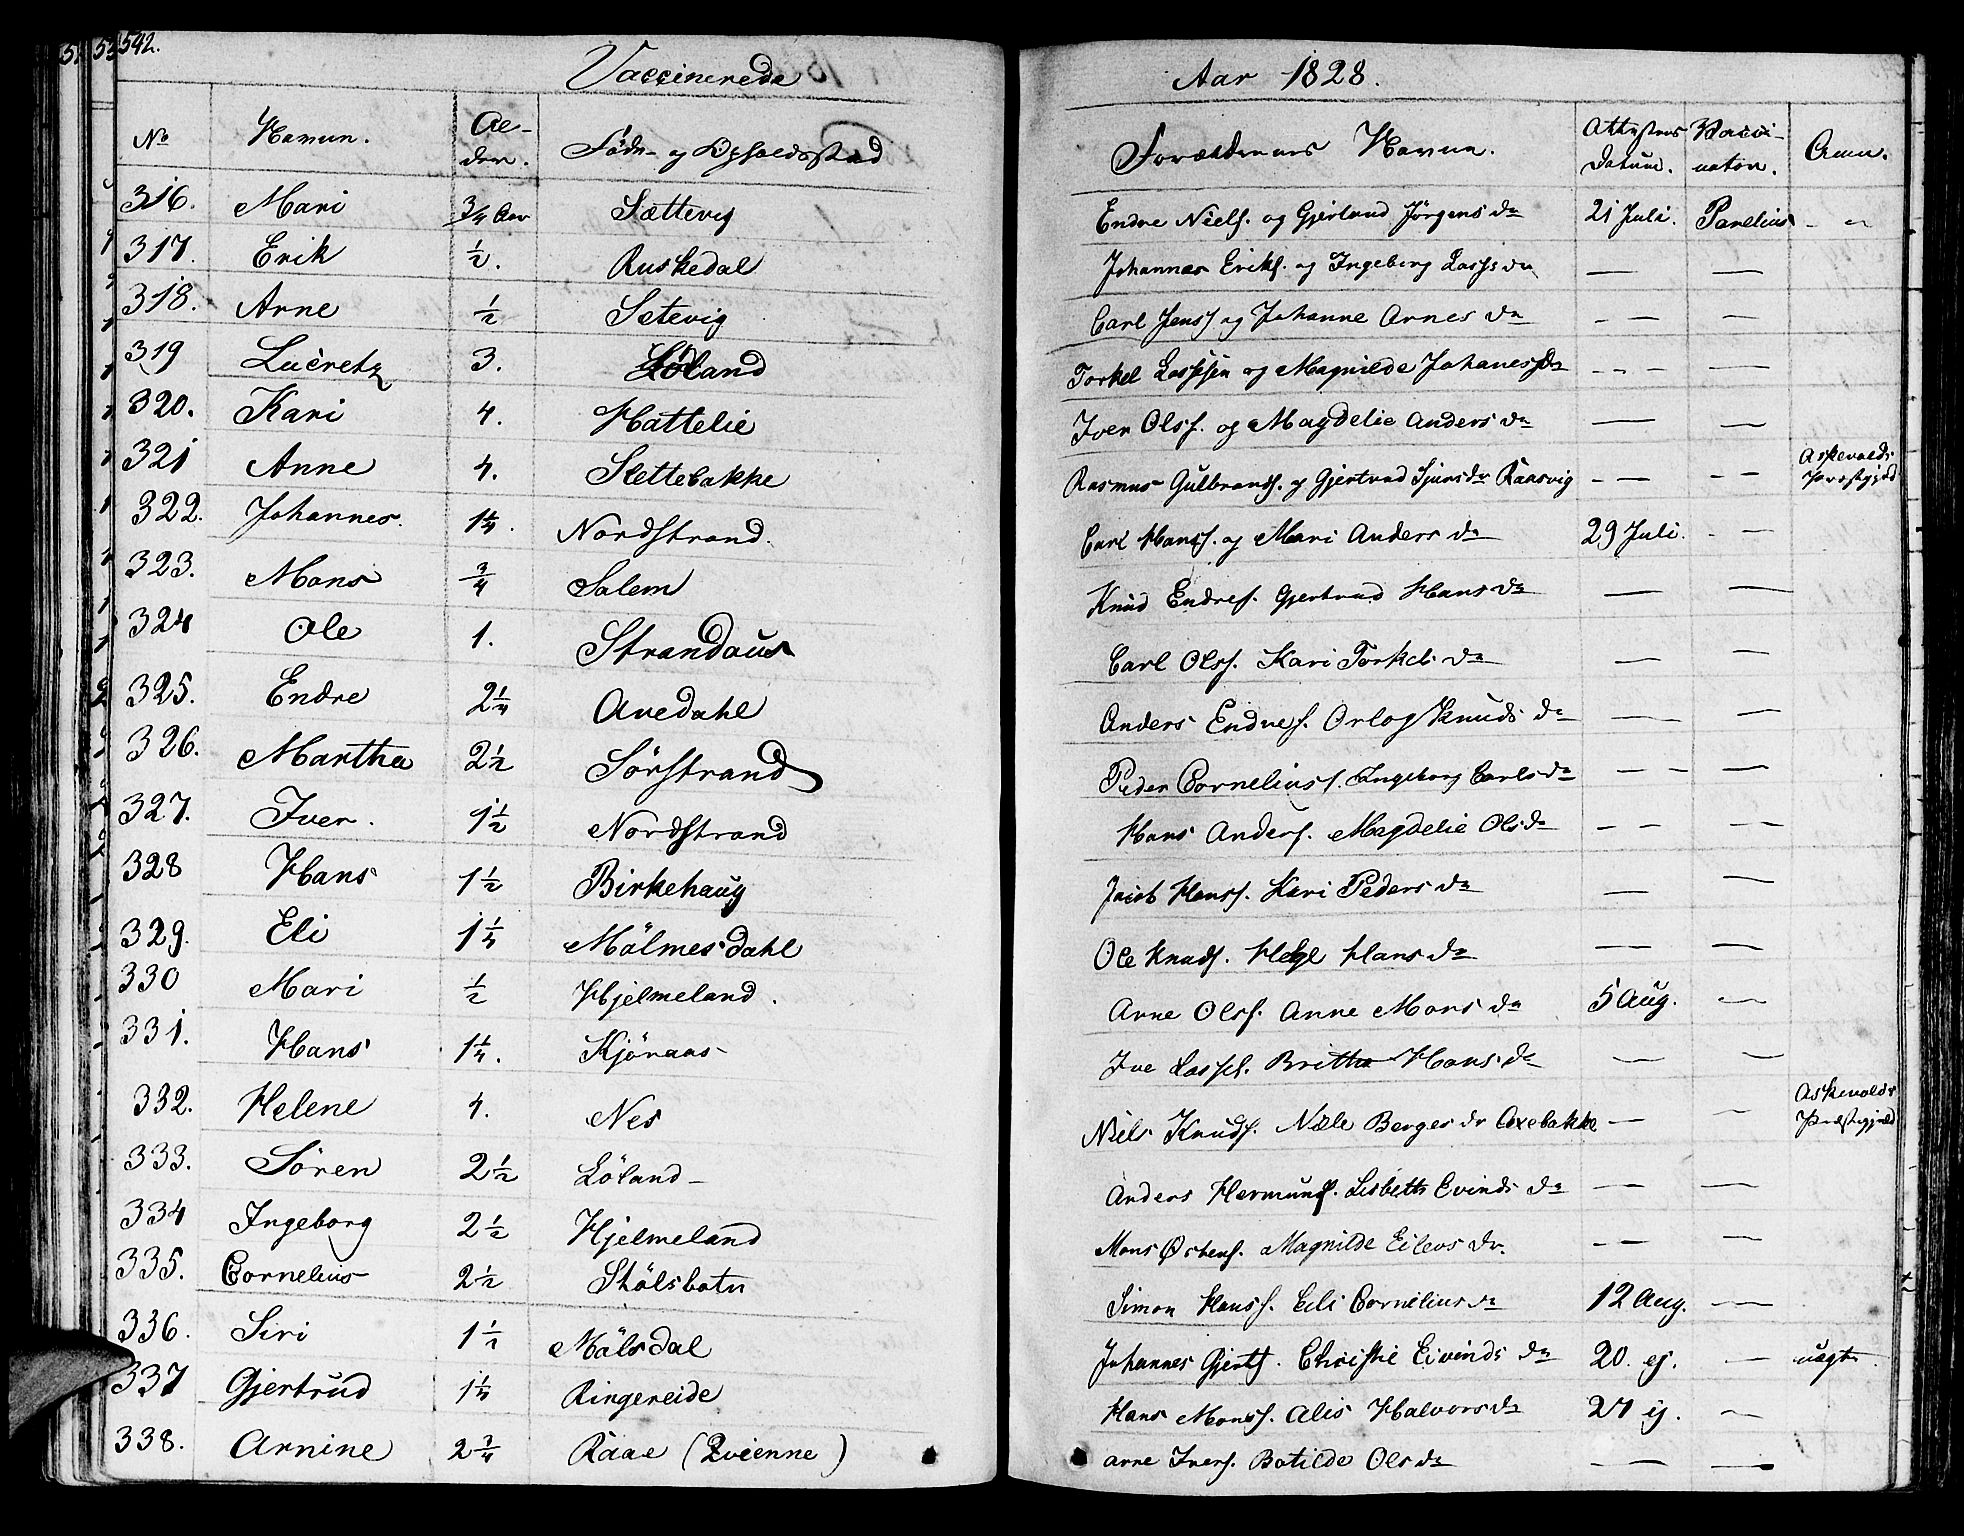 542.
Vaccinerede Aar 1828.
No Navne. Al-der. Föde- og Opholdsstæd Forældrenes Navne. Attestens Datum. Vacci-nator. Anm.
316. Mari 3/4 Aar Sættevig Endre Niels. og Gjertrud Jörgens Dr 21 Juli. Parelius - "
317. Erik 1/2. Ruskedal Johannes Eriks. og Ingeborg Lasse Dr — —
318. Arne 1/2 Setevig Carl Jens. og Johanne Arnes Dr — — —
319 Lucretz 3. Löland Torkel Lassesen og Magnilde Johanes Dr - - - —
320. Kari 4. Hattelie Iver Ols. og Magdelie Anders Dr — —
321 Anne 4. Slettebakke Rasmus Gulbrands. og Gjertrud Siurs Dr Raasvig - — - — Askevolds Præstegjeld
322. Johannes. 1 1/4. Nordstrand. Carl Hans. og Mari Anders Dr 29 Juli. - —
323. Mons 3/4 Salem Knud Endres. Gjertrud Hans Dr — —
324 Ole 1. Strandaus Carl Ols. Kari Torkels Dr — —
325. Endre 2 1/4 Avedahl Anders Endres. Orlog Knuds Dr — —
326. Martha 2 1/2 Sörstrand Peder Cornelius. Ingeborg Carls Dr — — - —
327. Iver. 1 1/2 Nordstrand Hans Anders. Magdelie Ols Dr — — —
328 Hans 1 1/2 Birkehaug Jacob Hans. Kari Peders Dr — —
329. Eli 1 1/4 Mölmesdahl Ole Knuds. Helge Hans Dr — —
330 Mari 1/2 Hjelmeland. Arne Ols. Anne Mons Dr 5 Aug. —
331. Hans 1 1/4. Kjöraas Ive Lasses. Britha Hans Dr — —
332. Helene 4. Nes Niels Knuds. Næle Berges Dr Oxebakke — — Askevolds Præstegjeld
333. Sören 2 1/2 Löland Anders Hermunds. Lisbeth Evinds Dr — — —
334 Ingeborg 2 1/2 Hjelmeland Mons Østens. Magnilde Eilevs Dr. — — —
335. Cornelius 2 1/2 Stölsbotn Simon Hans. Eli Cornelius Dr 12 Aug. —
336. Siri 1 1/2 Mölsdal Johannes Gjerts. Christie Eivinds Dr 20. ej. — uægte.
337 Gjertrud 1 1/4 Ringereide Hans Mons. Alis Halvors Dr 27 ej. —
338. Arnine 2 3/4 Raae (Qvienne) Arne Ivers. Botilde Ols Dr — — —